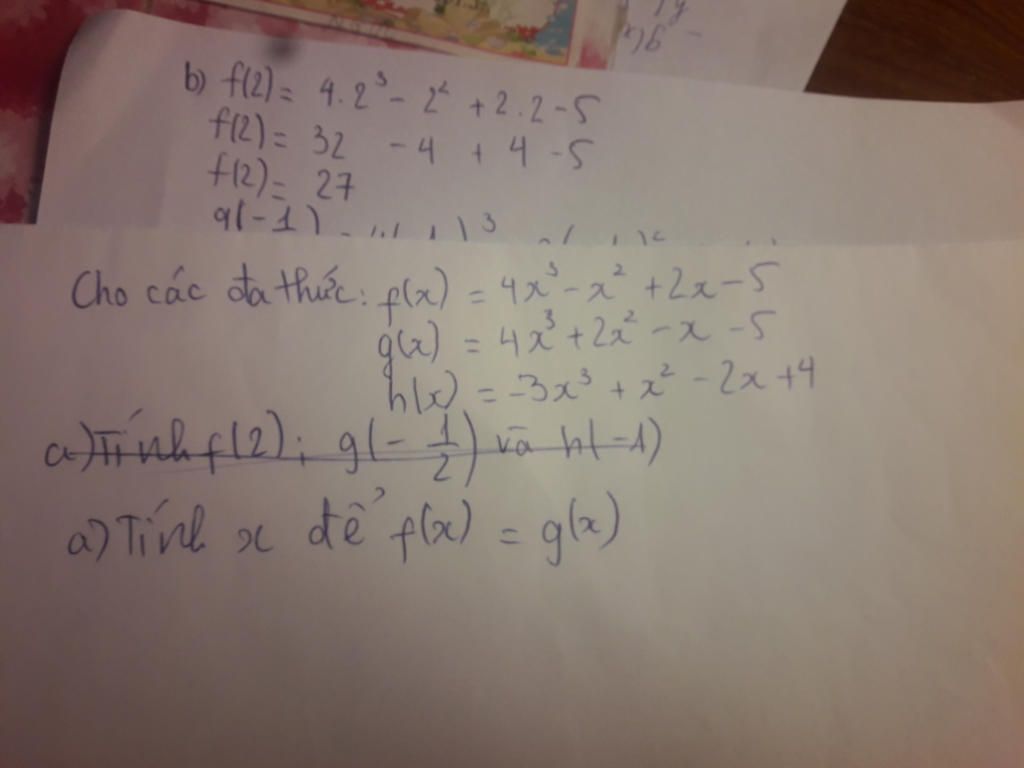 b) f(2) = 4.2³ - 2² + 2.2 - 5
f(2) = 32 - 4 + 4 - 5
f(2) = 27
g(-1)
Cho các đa thức: f(x) = 4x³ - x² + 2x - 5
g(x) = 4x³ + 2x² - x - 5
h(x) = -3x³ + x² - 2x + 4
a) Tính f(2); g(-1/2) và h(-1)
a) Tính x để f(x) = g(x)